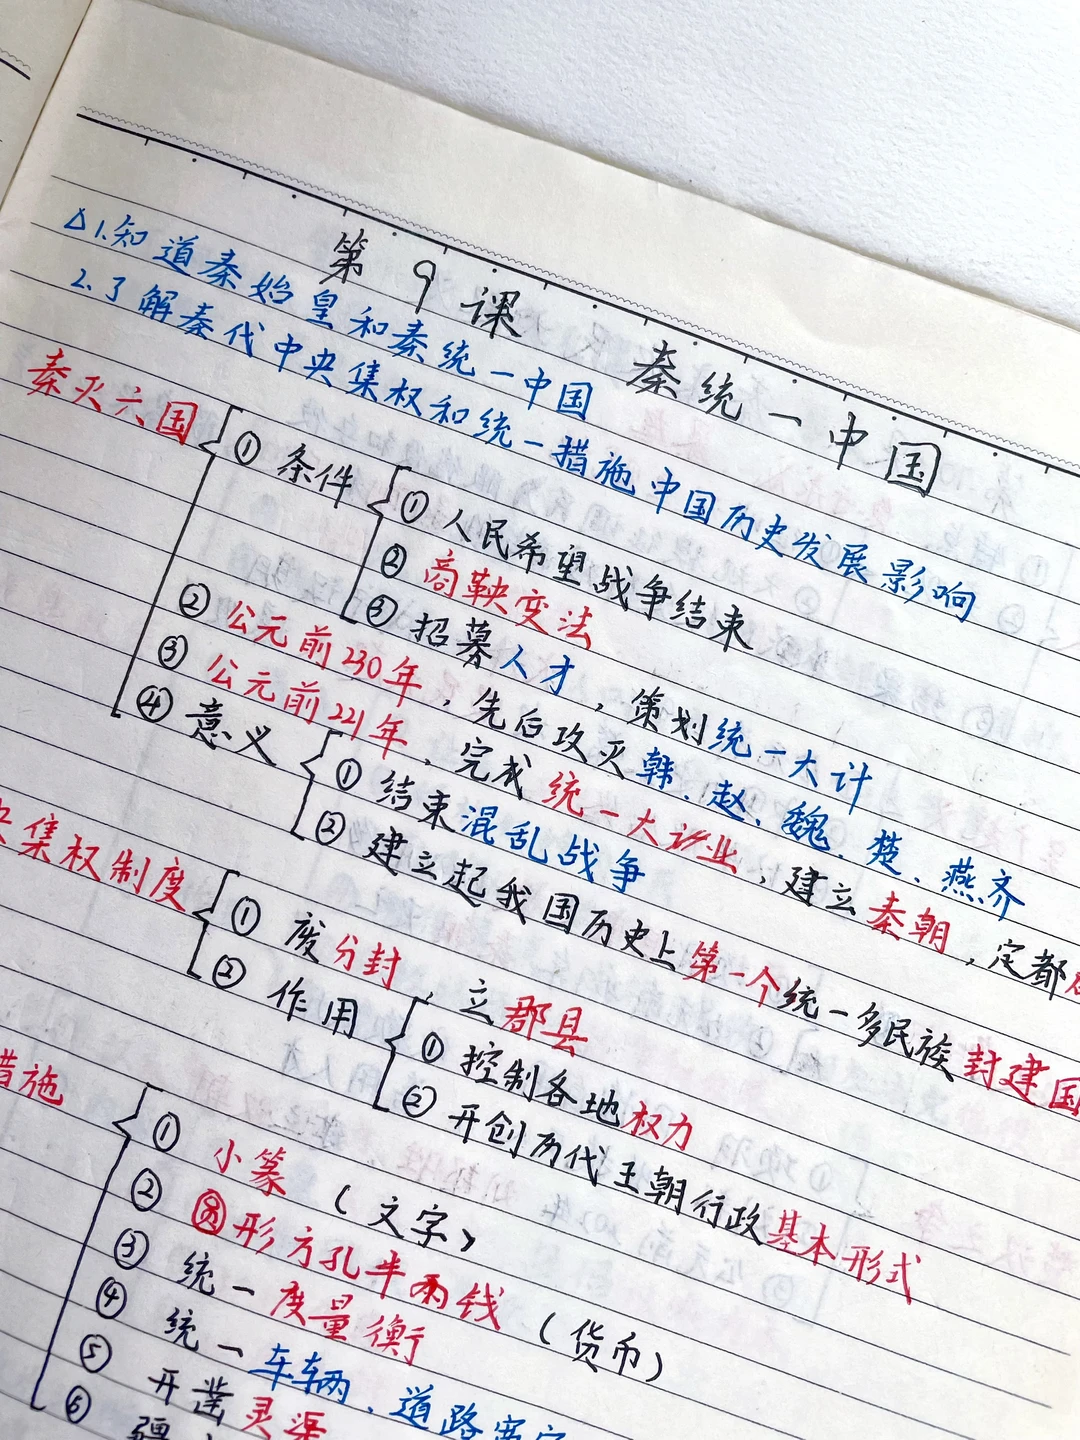 第9课 秦统一中国
△1.知道秦始皇和秦统一中国
2.了解秦代中央集权和统一措施中国历史发展影响
秦灭六国
① 条件
① 人民希望战争结束
② 商鞅变法
③ 招募人才，策划统一大计
② 公元前230年，先后攻灭韩、赵、魏、楚、燕、齐
③ 公元前221年，完成统一大业，建立秦朝，定都
④ 意义
① 结束混乱战争
② 建立起我国历史上第一个统一多民族封建国
央集权制度
① 废分封，立郡县
② 作用
① 控制各地权力
② 开创历代王朝行政基本形式
措施
① 小篆（文字）
② 圆形方孔半两钱（货币）
③ 统一度量衡
④ 统一车辆、道路宽
⑤ 开凿灵渠
⑥ 疆